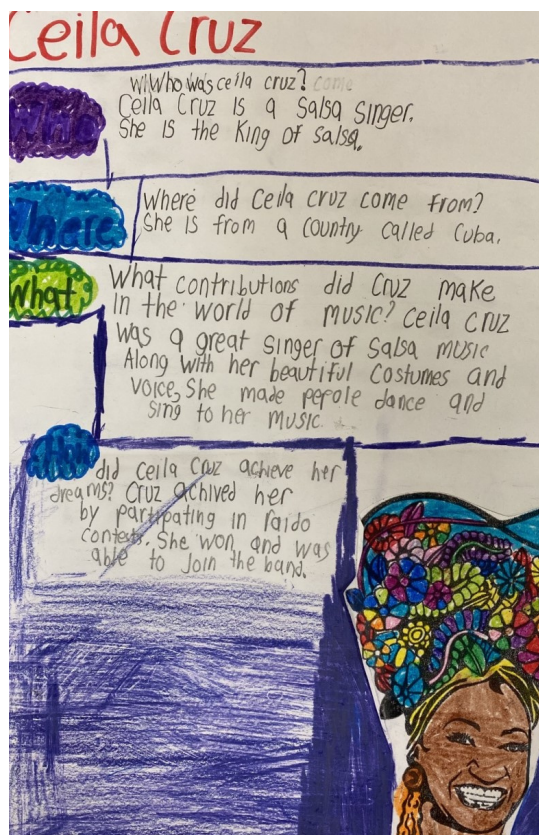 Ceila Cruz
Who
Who was ceila cruz? come
Ceila Cruz is a salsa singer.
She is the King of salsa.
Where
Where did Ceila cruz come from?
She is from a country called Cuba.
What
What contributions did Cruz make
in the world of music? Ceila Cruz
was a great singer of salsa music
Along with her beautiful costumes and
voice, She made pepole dance and
sing to her music
How
did Ceila Cruz achieve her
dreams? Cruz achived her
by partipating in raido
contests. She won and was
able to join the band.